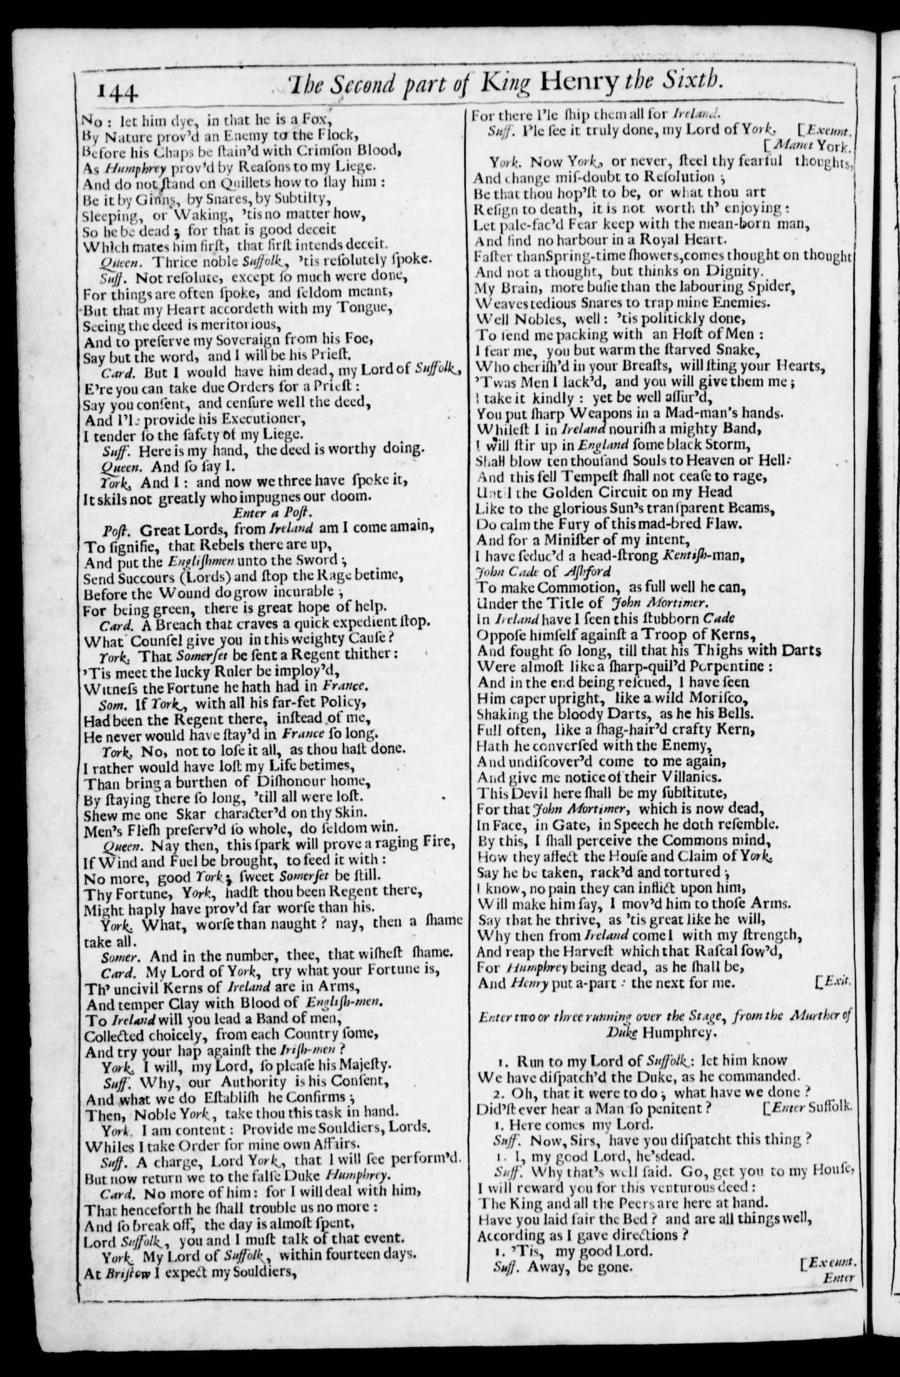 144
The Second part of King Henry the Sixth.
No : let him dye, in that he is a Fox,
By Nature prov'd an Enemy to the Flock,
Before his Chaps be ſtain'd with Crimſon Blood,
As Humphrey prov'd by Reaſons to my Liege.
And do not ſtand on Quillets how to ſlay him :
Be it by Ginns, by Snares, by Subtilty,
Sleeping, or Waking, 'tis no matter how,
So he be dead ; for that is good deceit
Which mates him firſt, that firſt intends deceit.
Queen. Thrice noble Suffolk, 'tis reſolutely ſpoke.
Suff. Not reſolute, except ſo much were done,
For things are often ſpoke, and ſeldom meant,
But that my Heart accordeth with my Tongue,
Seeing the deed is meritorious,
And to preſerve my Soveraign from his Foe,
Say but the word, and I will be his Prieſt.
Card. But I would have him dead, my Lord of Suffolk,
E're you can take due Orders for a Prieſt :
Say you conſent, and cenſure well the deed,
And I'l: provide his Executioner,
I tender ſo the ſafety of my Liege.
Suff. Here is my hand, the deed is worthy doing.
Queen. And ſo ſay I.
York. And I : and now we three have ſpoke it,
It skils not greatly who impugnes our doom.
Enter a Poſt.
Poſt. Great Lords, from Ireland am I come amain,
To ſignifie, that Rebels there are up,
And put the Engliſhmen unto the Sword ;
Send Succours (Lords) and ſtop the Rage betime,
Before the Wound do grow incurable ;
For being green, there is great hope of help.
Card. A Breach that craves a quick expedient ſtop.
What Counſel give you in this weighty Cauſe ?
York. That Somerſet be ſent a Regent thither :
'Tis meet the lucky Ruler be imploy'd,
Witneſs the Fortune he hath had in France.
Som. If York, with all his far-fet Policy,
Had been the Regent there, inſtead of me,
He never would have ſtay'd in France ſo long.
York. No, not to loſe it all, as thou haſt done.
I rather would have loſt my Life betimes,
Than bring a burthen of Diſhonour home,
By ſtaying there ſo long, 'till all were loſt.
Shew me one Skar character'd on thy Skin.
Men's Fleſh preſerv'd ſo whole, do ſeldom win.
Queen. Nay then, this ſpark will prove a raging Fire,
If Wind and Fuel be brought, to feed it with :
No more, good York ; ſweet Somerſet be ſtill.
Thy Fortune, York, hadſt thou been Regent there,
Might haply have prov'd far worſe than his.
York. What, worſe than naught ? nay, then a ſhame
take all.
Somer. And in the number, thee, that wiſheſt ſhame.
Card. My Lord of York, try what your Fortune is,
Th' uncivil Kerns of Ireland are in Arms,
And temper Clay with Blood of Engliſh-men.
To Ireland will you lead a Band of men,
Collected choicely, from each Country ſome,
And try your hap againſt the Iriſh-men ?
York. I will, my Lord, ſo pleaſe his Majeſty.
Suff. Why, our Authority is his Conſent,
And what we do Eſtabliſh he Confirms ;
Then, Noble York, take thou this task in hand.
York. I am content : Provide me Souldiers, Lords.
Whiles I take Order for mine own Affairs.
Suff. A charge, Lord York, that I will ſee perform'd.
But now return we to the falſe Duke Humphrey.
Card. No more of him : for I will deal with him,
That henceforth he ſhall trouble us no more :
And ſo break off, the day is almoſt ſpent,
Lord Suffolk, you and I muſt talk of that event.
York. My Lord of Suffolk, within fourteen days.
At Briſtow I expect my Souldiers,
For there I'le ſhip them all for Ireland.
Suff. I'le ſee it truly done, my Lord of York. [Exeunt.
[Manet York.
York. Now York, or never, ſteel thy fearful thoughts,
And change miſ-doubt to Reſolution ;
Be that thou hop'ſt to be, or what thou art
Reſign to death, it is not worth th' enjoying :
Let pale-fac'd Fear keep with the mean-born man,
And find no harbour in a Royal Heart.
Faſter thanSpring-time ſhowers,comes thought on thought
And not a thought, but thinks on Dignity.
My Brain, more buſie than the labouring Spider,
Weaves tedious Snares to trap mine Enemies.
Well Nobles, well : 'tis politickly done,
To ſend me packing with an Hoſt of Men :
I fear me, you but warm the ſtarved Snake,
Who cheriſh'd in your Breaſts, will ſting your Hearts,
'Twas Men I lack'd, and you will give them me ;
I take it kindly : yet be well aſſur'd,
You put ſharp Weapons in a Mad-man's hands.
Whileſt I in Ireland nouriſh a mighty Band,
I will ſtir up in England ſome black Storm,
Shall blow ten thouſand Souls to Heaven or Hell:
And this fell Tempeſt ſhall not ceaſe to rage,
Until the Golden Circuit on my Head
Like to the glorious Sun's tranſparent Beams,
Do calm the Fury of this mad-bred Flaw.
And for a Miniſter of my intent,
I have ſeduc'd a head-ſtrong Kentiſh-man,
John Cade of Aſhford
To make Commotion, as full well he can,
Under the Title of John Mortimer.
In Ireland have I ſeen this ſtubborn Cade
Oppoſe himſelf againſt a Troop of Kerns,
And fought ſo long, till that his Thighs with Darts
Were almoſt like a ſharp-quil'd Porpentine :
And in the end being reſcued, I have ſeen
Him caper upright, like a wild Moriſco,
Shaking the bloody Darts, as he his Bells.
Full often, like a ſhag-hair'd crafty Kern,
Hath he converſed with the Enemy,
And undiſcover'd come to me again,
And give me notice of their Villanies.
This Devil here ſhall be my ſubſtitute,
For that John Mortimer, which is now dead,
In Face, in Gate, in Speech he doth reſemble.
By this, I ſhall perceive the Commons mind,
How they affect the Houſe and Claim of York.
Say he be taken, rack'd and tortured ;
I know, no pain they can inflict upon him,
Will make him ſay, I mov'd him to thoſe Arms.
Say that he thrive, as 'tis great like he will,
Why then from Ireland come I with my ſtrength,
And reap the Harveſt which that Raſcal ſow'd,
For Humphrey being dead, as he ſhall be,
And Henry put a-part : the next for me. [Exit.
Enter two or three running over the Stage, from the Murther of
Duke Humphrey.
1. Run to my Lord of Suffolk : let him know
We have diſpatch'd the Duke, as he commanded.
2. Oh, that it were to do ; what have we done ?
Did'ſt ever hear a Man ſo penitent ? [Enter Suffolk.
1. Here comes my Lord.
Suff. Now, Sirs, have you diſpatcht this thing ?
1. I, my good Lord, he's dead.
Suff. Why that's well ſaid. Go, get you to my Houſe,
I will reward you for this venturous deed :
The King and all the Peers are here at hand.
Have you laid fair the Bed ? and are all things well,
According as I gave directions ?
1. 'Tis, my good Lord.
Suff. Away, be gone. [Exeunt.
Enter